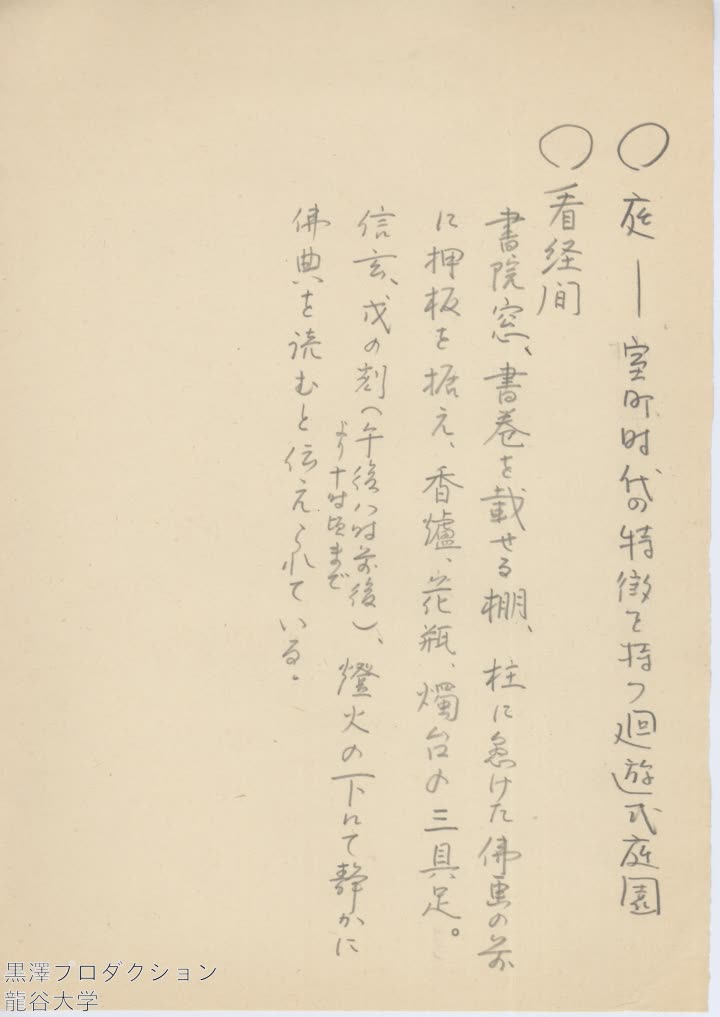 〇 庭 ― 室町时代の特徴を持つ廻遊式庭園
〇 看経间
書院窓、書巻を載せる棚、柱に懸けた佛画の前
に押板を据え、香爐、花瓶、燭台の三具足。
信玄、戌の刻(午後八时前後)、燈火の下にて静かに
より十时頃まで
佛典を読むと伝えられている。
黒澤プロダクション
龍谷大学